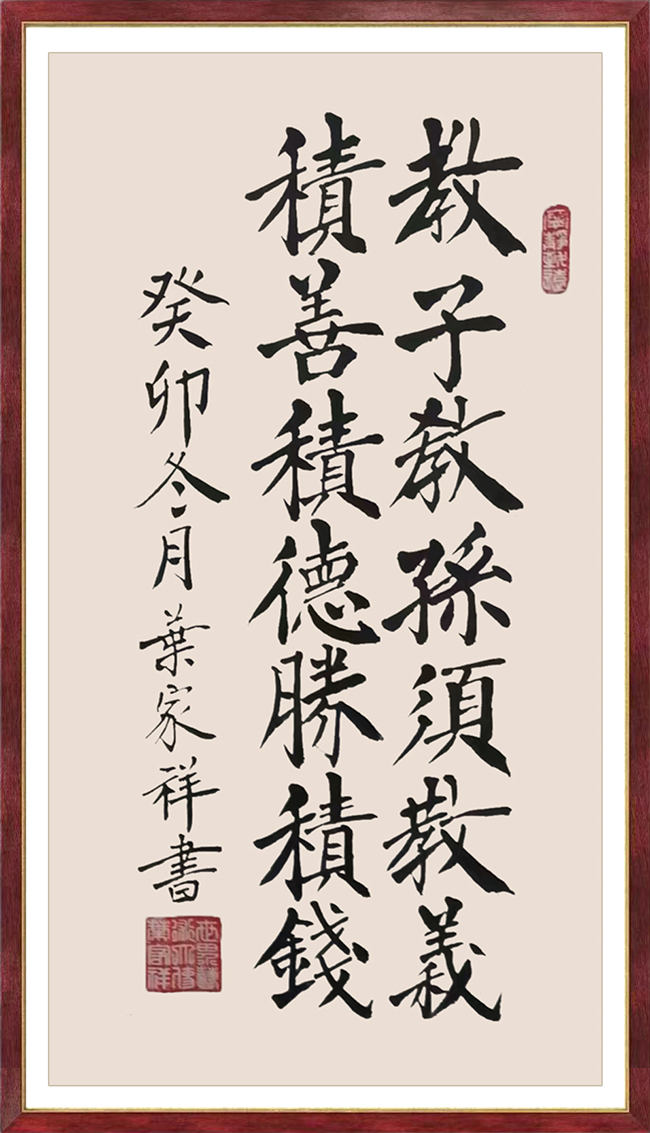 教子教孫須教義
積善積德勝積錢
癸卯冬月葉家祥書
寧靜致遠